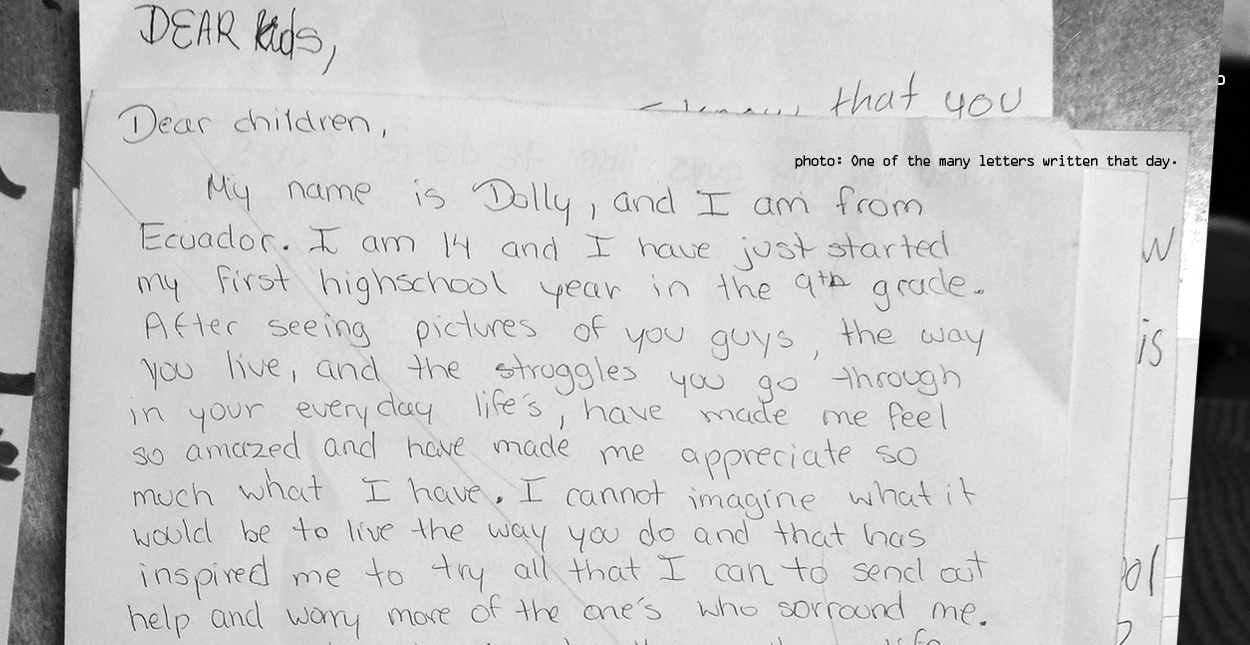 DEAR kids,
that you
Dear children,
photo: One of the many letters written that day.
My name is Dolly, and I am from
Ecuador. I am 14 and I have just started
my first highschool year in the 9th grade.
After seeing pictures of you guys, the way
you live, and the struggles you go through
in your everyday life's, have made me feel
so amazed and have made me appreciate so
much what I have. I cannot imagine what it
would be to live the way you do and that has
inspired me to try all that I can to send out
help and worry more of the one's who sorround me.
W
is